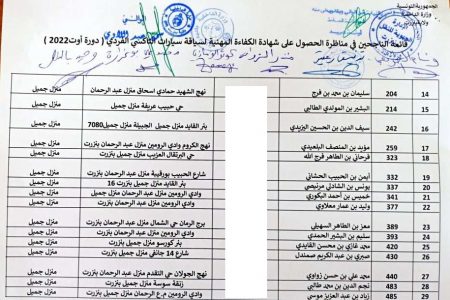 الجمهورية التونسية
وزارة الداخلية
قائمة الناجحين في مناظرة الحصول على شهادة الكفاءة المهنية لسياقة سيارات التاكسي الفردي ( دورة أوت2022 )
14 204 سليمان بن محمد بن فرج نهج الشهيد حمادي اسحاق منزل عبد الرحمان منزل جميل
15 214 البشير بن المولدي الطالبي حي حبيب عريفة منزل جميل منزل جميل
16 242 سيف الدين بن الحسين اليزيدي بئر القايد منزل جميل الجبيلة منزل جميل7080 منزل جميل
17 259 مؤيد بن المنصف البلعيدي نهج الكروم وادي الرومين منزل عبد الرحمان بنزرت منزل جميل
18 323 فرحاني بن الطاهر فرج الله حي البرتقال العزيب منزل جميل بنزرت منزل جميل
19 332 أيمن بن الحبيب الحشاني شارع الحبيب بورقيبة منزل عبد الرحمان بنزرت منزل جميل
20 337 يونس بن الشاذلي مرنيصي بئر القايد منزل جميل بنزرت 16 منزل جميل
21 342 خميس بن أحمد البكوري وادي الرومين منزل عبد الرحمان منزل جميل منزل جميل
22 377 وليد بن عمار معلاوي وادي الرومين منزل عبد الرحمان بنزرت منزل جميل
23 389 معز بن الطاهر السهيلي برج الرمان حي الشمال منزل عبد الرحمان بنزرت منزل جميل
24 393 سليم بن البشير الحمدي وادي الرومين منزل عبد الرحمان بنزرت منزل جميل
25 421 محمد غازي بن محسن القايدي بئر كورسو منزل جميل بنزرت منزل جميل
26 430 صبري بن عبد الكريم صمندل شارع 14 جانفي منزل جميل بنزرت منزل جميل
27 440 محمد علي بن حسن زواوي نهج الجولان حي التقدم منزل عبد الرحمان بنزرت منزل جميل
28 483 نجم الدين بن محمد طالبي زنقة سوسة منزل جميل بنزرت منزل جميل
29 485 زياد بن عبد العزيز موسى وادي الرومين منزل ع الرحمان بنزرت منزل جميل